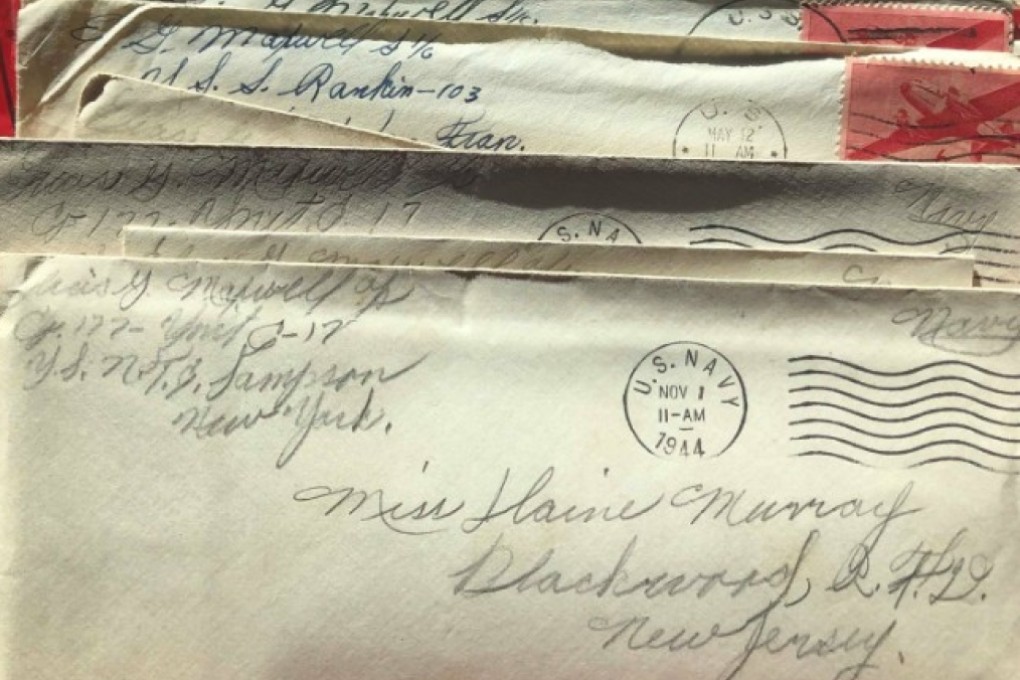 G. Maxwell S1/c.
U.S.S
G. Maxwell S1/c
U.S.S. Rankin-103
Fran.
U.S.
MAY 12
11 AM
G. Maxwell
Co 177- Unit C 17
S. NA
Navy
Maxwell
G. Maxwell
Co. 177- Unit C-17
U.S. N.T.S. Sampson
New York.
Navy
U.S. NAVY
NOV 1
11-AM
1944
Miss Elaine Murray
Blackwood, R.F.D.
New Jersey.